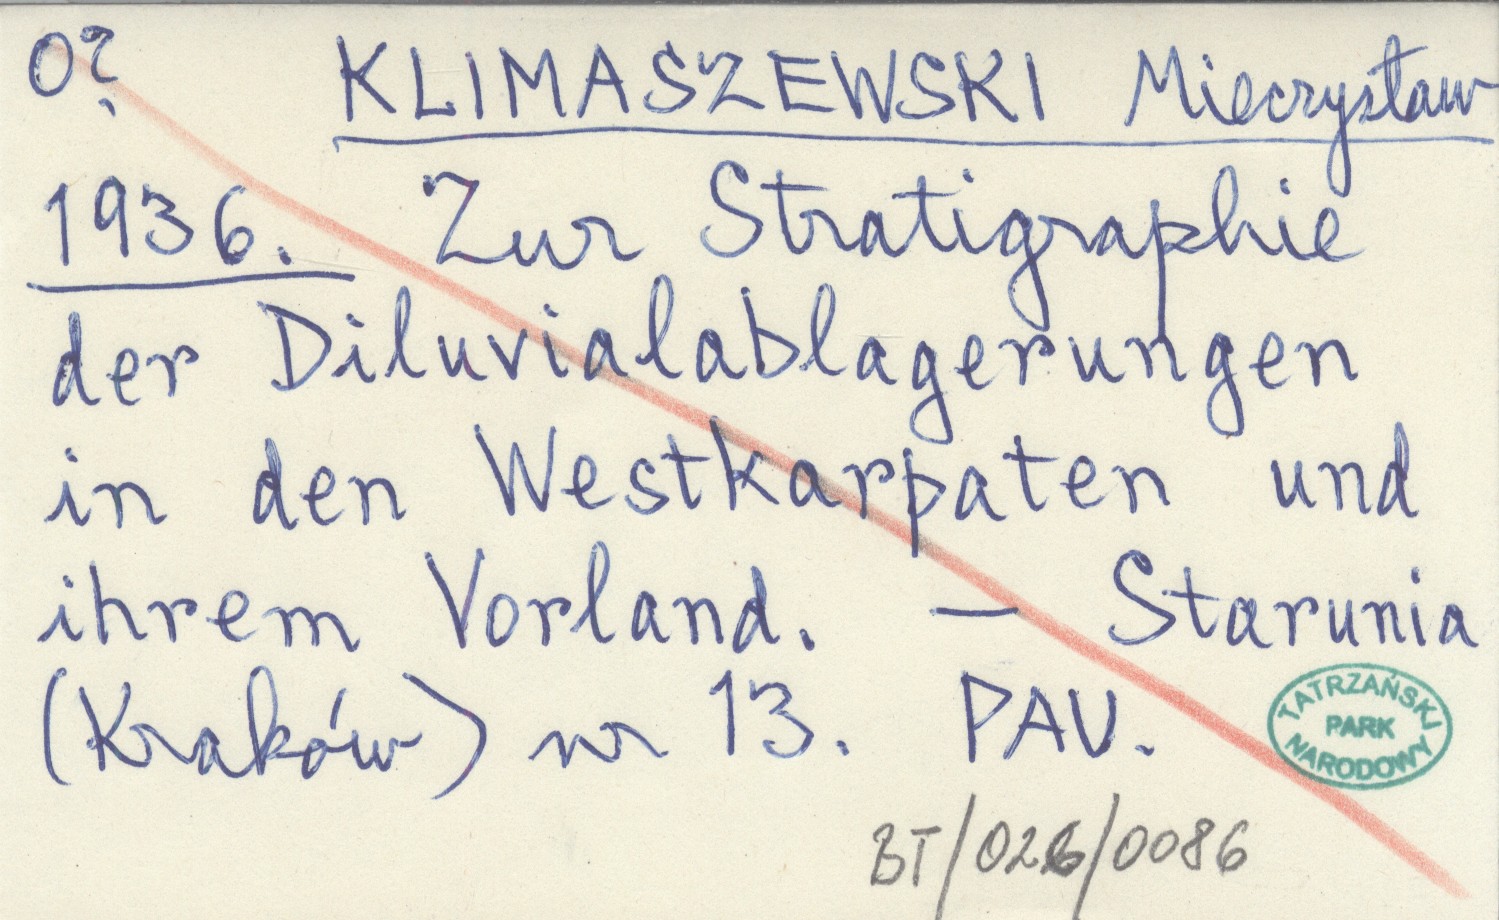 0? KLIMASZEWSKI Mieczysław
1936. Zur Stratigraphie
der Diluvialablagerungen
in den Westkarpaten und
ihrem Vorland. — Starunia
(Kraków) nr 13. PAU.
TATRZAŃSKI
PARK
NARODOWY
BT/026/0086